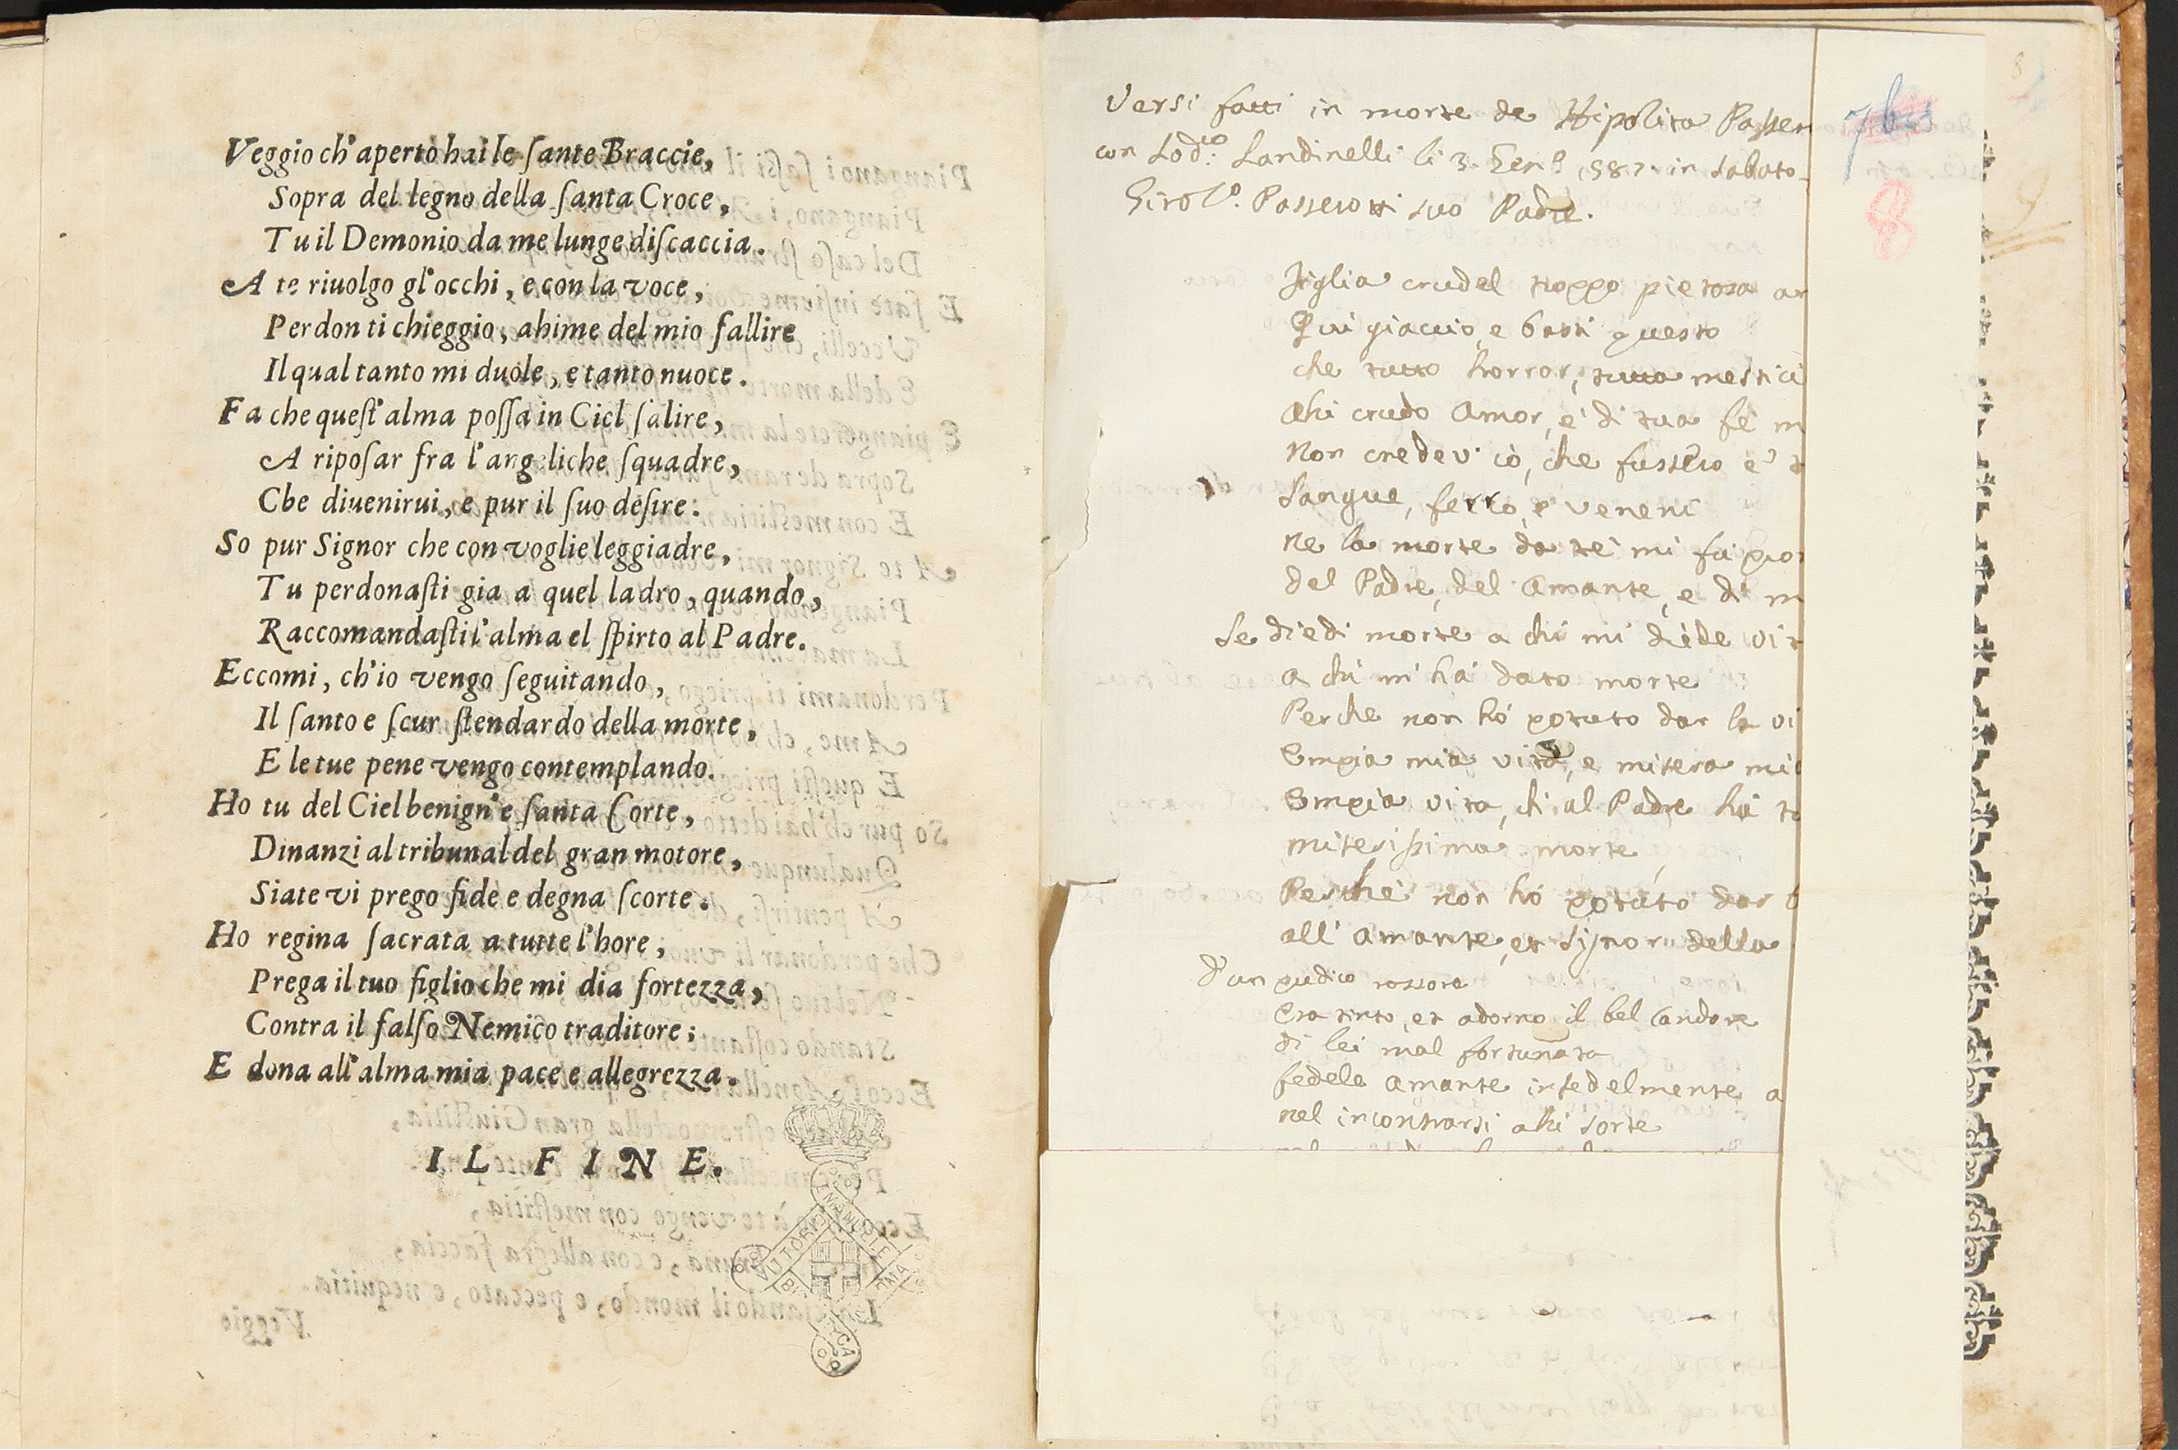 Veggio ch'aperto hai le ſante Braccie,
Sopra del legno della ſanta Croce,
Tu il Demonio da me lunge diſcaccia.
A te riuolgo gl'occhi, e con la voce,
Perdon ti chieggio, ahime del mio fallire
Il qual tanto mi duole, e tanto nuoce.
Fa che queſt'alma poſſa in Ciel ſalire,
A ripoſar fra l'angeliche ſquadre,
Che diuenirui, e pur il ſuo deſire:
So pur Signor che con voglie leggiadre,
Tu perdonaſti gia a quel ladro, quando,
Raccomandaſti l'alma el ſpirto al Padre.
Eccomi, ch'io vengo ſeguitando,
Il ſanto e ſcur ſtendardo della morte,
E le tue pene vengo contemplando.
Ho tu del Ciel benign'e ſanta Corte,
Dinanzi al tribunal del gran motore,
Siate vi prego fide e degna ſcorte.
Ho regina ſacrata a tutte l'hore,
Prega il tuo figlio che mi dia fortezza,
Contra il falſo Nemico traditore;
E dona all'alma mia pace e allegrezza.
IL FINE.
Veggio
Versi fatti in morte de Hipolita Passer
con Lod.co Landinelli li 3. 587. in Sabato
Girol.o Passerotti suo Padre.
figlia crudel troppo pietosa
Qui giaccio, e basti questo
che tutto horror, tutta mesti
Ahi crudo Amor, e di tua fe
Non credevi ciò, che fussero è
Sangue, ferro, e veneni
ne la morte da te mi fu
del Padre, del Amante, e di m
Se diedi morte a chi mi diede vi
a chi mi ha dato morte
Perche non hó potuto dar la vi
Empia mia vita, e misera mi
Empia vita, ch'al Padre ha to
miserissima morte
Perche non hó potuto dar
all'Amante, et Signor della
D'un pudico rossore
Era tinto, et adorno il bel Candore
di lei mal fortunata
fedele Amante infedelmente a
nel incontrarsi ahi sorte
7 bis
8
9
8